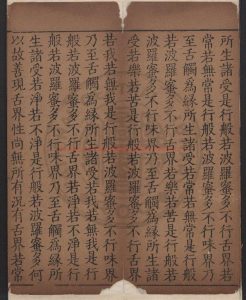 緣所生諸受是行般若波羅蜜多不行舌界若
常若無常是行般若波羅蜜多不行味界乃
至舌觸為緣所生諸受若常若無常是行般
若波羅蜜多不行舌界若樂若苦是行般若
波羅蜜多不行味界乃至舌觸為緣所生諸
受若樂若苦是行般若波羅蜜多不行舌界
若我若無我是行般若波羅蜜多不行味界
乃至舌觸為緣所生諸受若我若無我是行
般若波羅蜜多不行舌界若淨若不淨是行
般若波羅蜜多不行味界乃至舌觸為緣所
生諸受若淨若不淨是行般若波羅蜜多何
以故善現舌界性尚無所有況有舌界若常